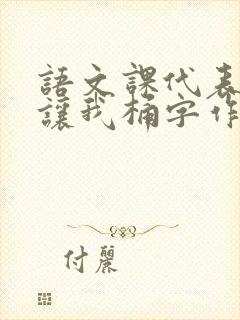 語文課代表
讓我桶字作
付麗